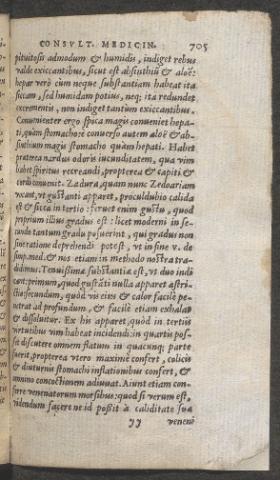 CONSVLT. MEDICIN. 705
pituitosis admodum & humidis, indiget rebus
valde exiccantibus, sicut est absinthiũ & aloë:
hepar verò cùm neque substantiam habeat ita
siccam, sed humidam potius, neq; ita redundet
excrementis, non indiget tantùm exiccantibus.
Conuenienter ergo spica magis conueniet hepa-
ti, quàm stomacho: è conuerso autem aloë & ab-
sinthium magis stomacho quàm hepati. Habet
præterea nardus odoris iucunditatem, qua vim
habet spiritus recreandi, propterea & capiti &
cordi conuenit. Zadura, quam nunc Zedoariam
vocant, vt gustāti apparet, proculdubio calida
est & sicca in tertio: feruet enim gustu, quod
proprium illius gradus est: licet moderni in se-
cundo tantum gradu posuerint, qui gradus non
sine ratione deprehendi potest, vt in fine v. de
simp. med. & nos etiam in methodo nostra tra-
didimus. Tenuissima substantia est, vt duo indi
cant: primum, quod gustāti nulla apparet astri-
ctio: secundum, quòd vis eius & calor facilè pe-
netrat ad profundum, & facilè etiam exhalat
& dissoluitur. Ex his apparet, quòd in tertiis
virtutibus vim habeat incidendi: in quartis pos-
sit discutere omnem flatum in quacunq; parte
fuerit, propterea vtero maximè confert, colicis
& diuturnis stomachi inflationibus confert, &
omnino concoctionem adiuuat. Aiunt etiam con-
ferre venenatorum morsibus: quod si verum est,
videndum facere ne id possit à caliditate sua
yy veneno